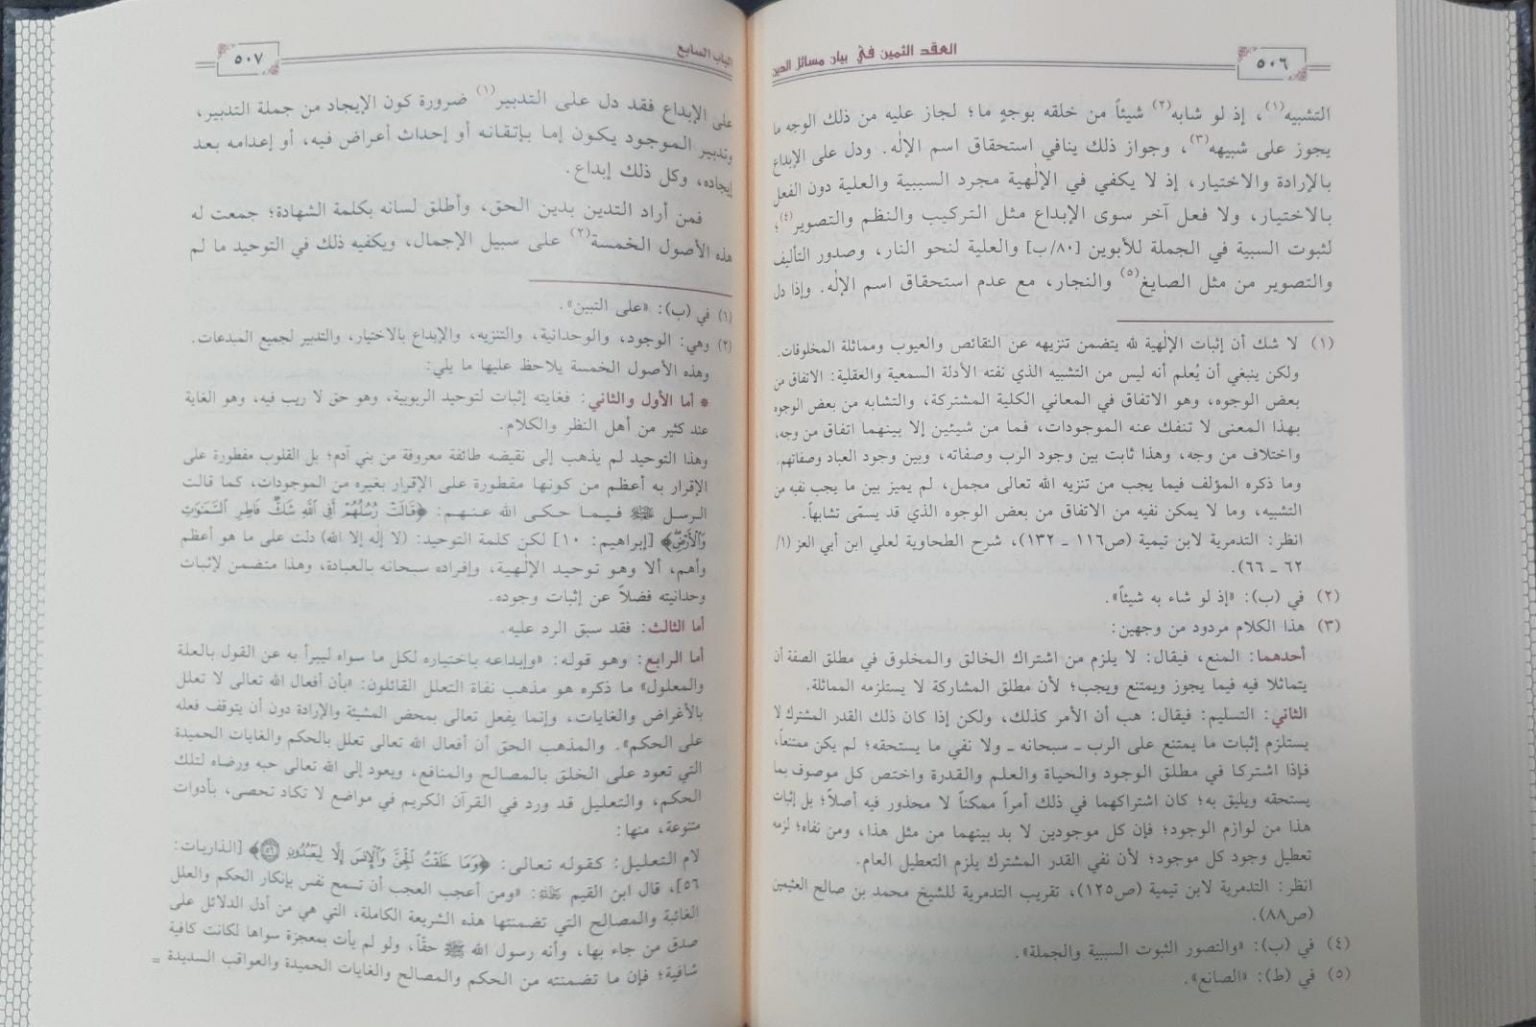 ٥٠٦
العقد الثمين في بيان مسائل الدين
التشبيه(١)، إذ لو شابه(٢) شيئاً من خلقه بوجهٍ ما؛ لجاز عليه من ذلك الوجه ما
يجوز على شبيهه(٣)، وجواز ذلك ينافي استحقاق اسم الإلٰه. ودل على الإبداع
بالإرادة والاختيار، إذ لا يكفي في الإلٰهية مجرد السببية والعلية دون الفعل
بالاختيار، ولا فعل آخر سوى الإبداع مثل التركيب والنظم والتصوير(٤)؛
لثبوت السببية في الجملة للأبوين [٨٠/ب] والعلية لنحو النار، وصدور التأليف
والتصوير من مثل الصايغ(٥) والنجار، مع عدم استحقاق اسم الإلٰه. وإذا دل
(١) لا شك أن إثبات الإلٰهية لله يتضمن تنزيهه عن النقائص والعيوب ومماثلة المخلوقات.
ولكن ينبغي أن يُعلم أنه ليس من التشبيه الذي نفته الأدلة السمعية والعقلية: الاتفاق من
بعض الوجوه، وهو الاتفاق في المعاني الكلية المشتركة، والتشابه من بعض الوجوه
بهذا المعنى لا تنفك عنه الموجودات، فما من شيئين إلا بينهما اتفاق من وجه،
واختلاف من وجه، وهذا ثابت بين وجود الرب وصفاته، وبين وجود العباد وصفاتهم.
وما ذكره المؤلف فيما يجب من تنزيه الله تعالى مجمل، لم يميز بين ما يجب نفيه من
التشبيه، وما لا يمكن نفيه من الاتفاق من بعض الوجوه الذي قد يسمّى تشابهاً.
انظر: التدمرية لابن تيمية (ص١١٦ ـ ١٣٢)، شرح الطحاوية لعلي ابن أبي العز (١/
٦٢ ـ ٦٦).
(٢) في (ب): «إذ لو شاء به شيئاً».
(٣) هذا الكلام مردود من وجهين:
أحدهما: المنع، فيقال: لا يلزم من اشتراك الخالق والمخلوق في مطلق الصفة أن
يتماثلا فيه فيما يجوز ويمتنع ويجب؛ لأن مطلق المشاركة لا يستلزمه المماثلة.
الثاني: التسليم: فيقال: هب أن الأمر كذلك، ولكن إذا كان ذلك القدر المشترك لا
يستلزم إثبات ما يمتنع على الرب ـ سبحانه ـ ولا نفي ما يستحقه؛ لم يكن ممتنعاً،
فإذا اشتركا في مطلق الوجود والحياة والعلم والقدرة واختص كل موصوف بما
يستحقه ويليق به؛ كان اشتراكهما في ذلك أمراً ممكناً لا محذور فيه أصلاً؛ بل إثبات
هذا من لوازم الوجود؛ فإن كل موجودين لا بد بينهما من مثل هذا، ومن نفاه؛ لزمه
تعطيل وجود كل موجود؛ لأن نفي القدر المشترك يلزم التعطيل العام.
انظر: التدمرية لابن تيمية (ص١٢٥)، تقريب التدمرية للشيخ محمد بن صالح العثيمين
(ص٨٨).
(٤) في (ب): «والتصور الثبوت السببية والجملة».
(٥) في (ط): «الصانع».
الباب السابع
٥٠٧
على الإبداع فقد دل على التدبير(١) ضرورة كون الإيجاد من جملة التدبير،
وتدبير الموجود يكون إما بإتقانه أو إحداث أعراض فيه، أو إعدامه بعد
إيجاده، وكل ذلك إبداع.
فمن أراد التدين بدين الحق، وأطلق لسانه بكلمة الشهادة؛ جمعت له
هذه الأصول الخمسة(٢) على سبيل الإجمال، ويكفيه ذلك في التوحيد ما لم
(١) في (ب): «على التبين».
(٢) وهي: الوجود، والوحدانية، والتنزيه، والإبداع بالاختيار، والتدبير لجميع المبدعات.
وهذه الأصول الخمسة يلاحظ عليها ما يلي:
* أما الأول والثاني: فغايته إثبات لتوحيد الربوبية، وهو حق لا ريب فيه، وهو الغاية
عند كثير من أهل النظر والكلام.
وهذا التوحيد لم يذهب إلى نقيضه طائفة معروفة من بني آدم؛ بل القلوب مفطورة على
الإقرار به أعظم من كونها مفطورة على الإقرار بغيره من الموجودات، كما قالت
الرسل ﷺ فيما حكى الله عنهم: ﴿قَالَتْ رُسُلُهُمْ أَفِي اللَّهِ شَكٌّ فَاطِرِ السَّمَٰوَٰتِ
وَالْأَرْضِ﴾ [إبراهيم: ١٠] لكن كلمة التوحيد: (لا إلٰه إلا الله) دلت على ما هو أعظم
وأهم، ألا وهو توحيد الإلٰهية، وإفراده سبحانه بالعبادة، وهذا متضمن لإثبات
وحدانيته فضلاً عن إثبات وجوده.
أما الثالث: فقد سبق الرد عليه.
أما الرابع: وهو قوله: «وإبداعه باختياره لكل ما سواه ليبرأ به عن القول بالعلة
والمعلول» ما ذكره هو مذهب نفاة التعلل القائلون: «بأن أفعال الله تعالى لا تعلل
بالأغراض والغايات، وإنما يفعل تعالى بمحض المشيئة والإرادة دون أن يتوقف فعله
على الحكم». والمذهب الحق أن أفعال الله تعالى تعلل بالحكم والغايات الحميدة
التي تعود على الخلق بالمصالح والمنافع، ويعود إلى الله تعالى حبه ورضاه لتلك
الحكم، والتعليل قد ورد في القرآن الكريم في مواضع لا تكاد تحصى، بأدوات
متنوعة، منها:
لام التعليل: كقوله تعالى: ﴿وَمَا خَلَقْتُ الْجِنَّ وَالْإِنسَ إِلَّا لِيَعْبُدُونِ ٥٦﴾ [الذاريات:
٥٦]، قال ابن القيم رحمه الله: «ومن أعجب العجب أن تسمع نفس بإنكار الحكم والعلل
الغائية والمصالح التي تضمنتها هذه الشريعة الكاملة، التي هي من أدل الدلائل على
صدق من جاء بها، وأنه رسول الله ﷺ حقّاً، ولو لم يأت بمعجزة سواها لكانت كافية
شافية؛ فإن ما تضمنته من الحكم والمصالح والغايات الحميدة والعواقب السديدة =